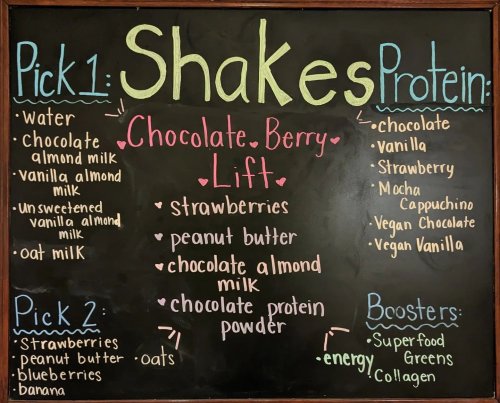 Shakes
Pick 1:
• water
• Chocolate
almond milk
• vanilla almond
milk
• unsweetened
vanilla almond
milk
• oat milk
Chocolate Berry
Lift
strawberries
peanut butter
chocolate almond
milk
chocolate protein
powder
Protein:
• chocolate
• vanilla
• Strawberry
• Mocha
Cappuchino
• Vegan Chocolate
• Vegan Vanilla
Pick 2:
• Strawberries
• peanut butter
• blueberries
• banana
• oats
Boosters:
• Superfood
Greens
• Collagen
• energy